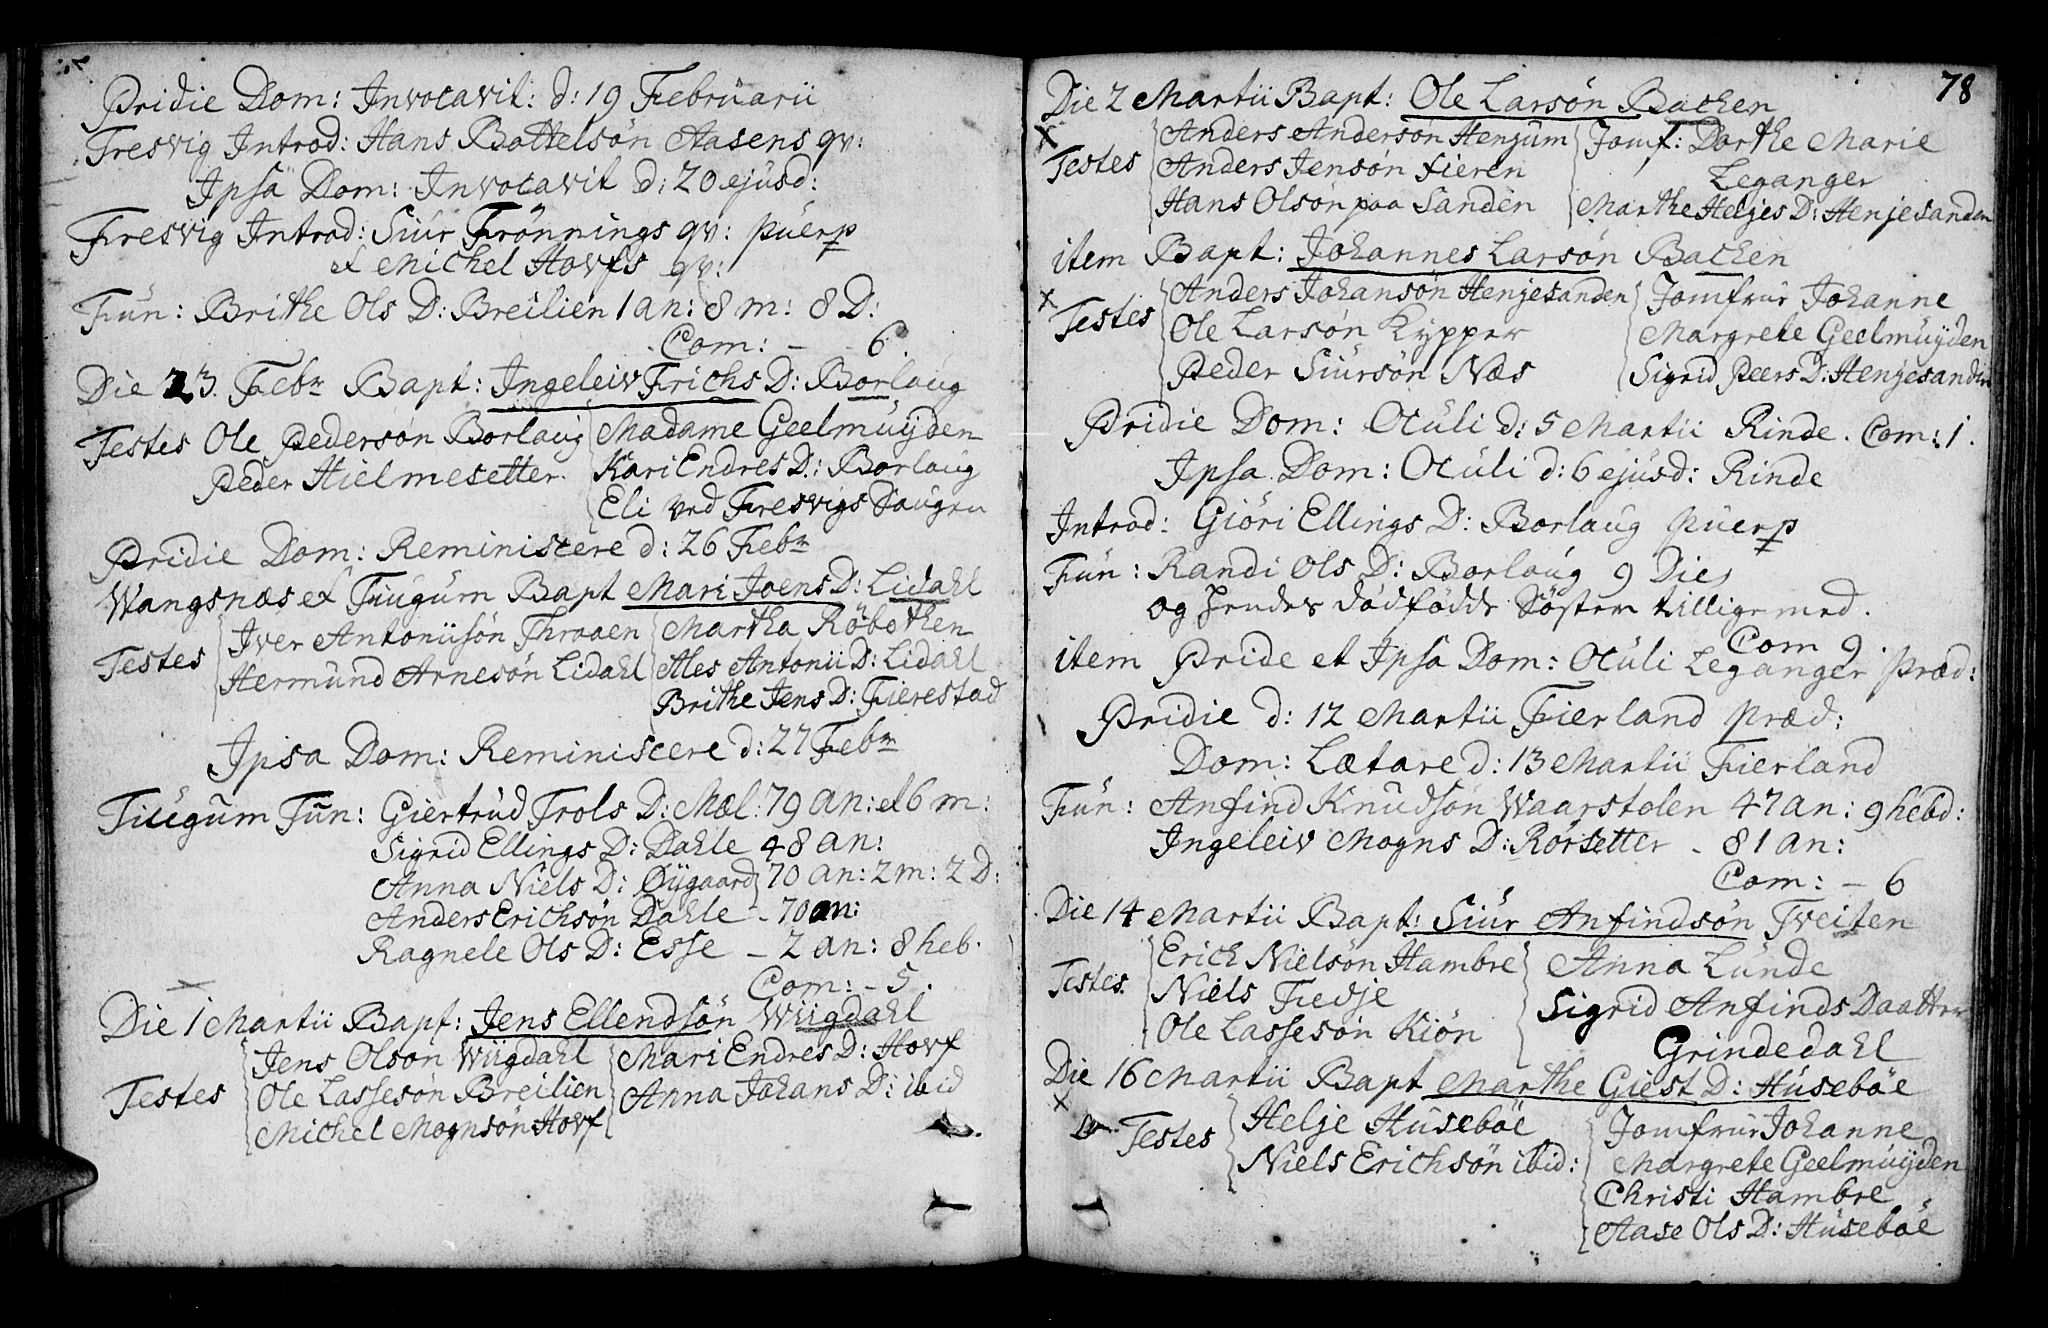 Pridie Dom: Invocavit: d: 19 Februarii
Fresvig Introd: Hans Bottelsøn Aasens qv:
Ipsa Dom: Invocavit d: 20 ejusd:
Fresvig Introd: Siur Frønnings qv: puerp
et Michel Hovfs qv:
Fun: Brithe Ols D: Breilien 1 an: 8 m: 8 D:
Com: - - 6.
Die 23. Febr Bapt: Ingeleiv Frichs D: Borlaug
Testes Ole Pedersøn Borlaug Madame Geelmuyden
Peder Hielmesetter. Kari Endres D: Borlaug
Eli ved Fresvigs Saugen
Pridie Dom: Reminiscere d: 26 Febr
Wangsnæs et Tiugum Bapt Mari Joens D: Lidahl
Iver Antoniisøn Thraaen Martha Røbothen
Testes Hermund Arnesøn Lidahl Ales Antonii D: Lidahl
Brithe Jens D: Fierestad
Ipsa Dom: Reminiscere d: 27 Febr
Tiugum Fun: Giertrud Trols D: Mæl: 79 an: et 6 m:
Sigrid Ellings D: Dahle 48 an:
Anna Niels D: Øygaard 70 an: 2 m: 2 D:
Anders Erichsøn Dahle - 70 an:
Ragnele Ols D: Esse - 2 an: 8 heb.
Com: - 5.
Die 1 Martii Bapt: Jens Ellendsøn Wiigdahl
Jens Olsøn Wiigdahl Mari Endres D: Hovf
Testes Ole Lassesøn Breilien Anna Johans D: ibid
Michel Mognsøn Hovf
78
Die 2 Martii Bapt: Ole Larsøn Bachen
x Anders Andersøn Henjum Jomf: Dorthe Marie
Testes Anders Jensøn Fieren Leganger
Hans Olsøn paa Sanden Marthe Heljes D: Henjesanden
item Bapt: Johannes Larsøn Bachen
x Anders Johansøn Henjesanden Jomfrur Johanne
Testes Ole Larsøn Kypper Margrete Geelmuyden
Peder Siursøn Næs Sigrid Peers D: Henjesanden
Pridie Dom: Oculi d: 5 Martii Rinde. Com: 1.
Ipsa Dom: Oculi d: 6 ejusd: Rinde
Introd: Giøri Ellings D: Borlaug puerp
Fun: Randi Ols D: Borlaug 9 Die
og hendes dødfødde Søster tilligemed.
Com 9.
item Pride et Ipsa Dom: Oculi Leganger præd:
Pridie d: 12 Martii Fierland præd:
Dom: Lætare d: 13 Martii Fierland
Fun: Anfind Knudsøn Waarstolen 47 an: 9 hebd:
Ingeleiv Mogns D: Rørsetter - 81 an:
Com: - 6
Die 14 Martii Bapt: Siur Anfindsøn Tveiten
Erich Nielsøn Hambre Anna Lunde
Testes. Niels Fedje Sigrid Anfinds Daatter
Ole Lassesøn Kiøn Grindedahl
Die 16 Martii Bapt Marthe Giest D: Husebøe
x Helje Husebøe Jomfrur Johanne
Testes Niels Erichsøn ibid: Margrete Geelmuyden
Christi Hambre
Aase Ols D: Husebøe